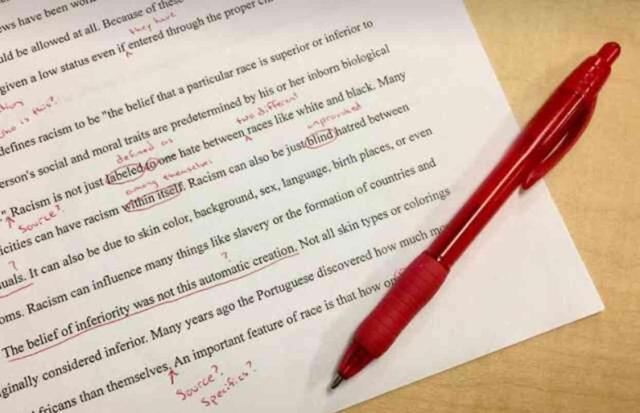 ews have been wor
uld be allowed at all. Because of these
they have
given a low status even if entered through the proper ch
who is this?
defines racism to be "the belief that a particular race is superior or inferior to
erson's social and moral traits are predetermined by his or her inborn biological
defined as two different unprovoked
" Racism is not just labeled to one hate between races like white and black. Many
Source? among themselves
icities can have racism within itself. Racism can also be just blind hatred between
?
uals. It can also be due to skin color, background, sex, language, birth places, or even
oms. Racism can influence many things like slavery or the formation of countries and
?
The belief of inferiority was not this automatic creation. Not all skin types or colorings
ginally considered inferior. Many years ago the Portuguese discovered how much mo
fricans than themselves. An important feature of race is that how
Source?
Specifics?